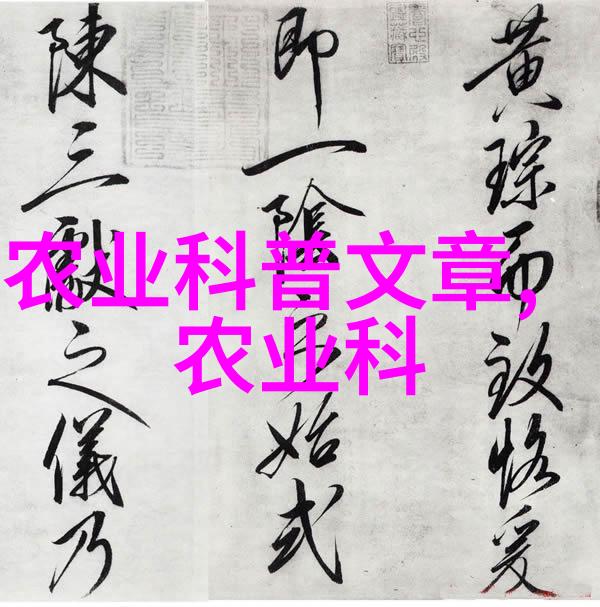 黄琮而致恪爰
即一陰始式
陳三獻之儀乃
农业科普文章,
农业科